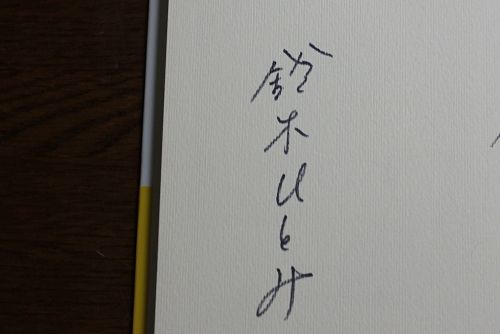 鈴木ひとみ